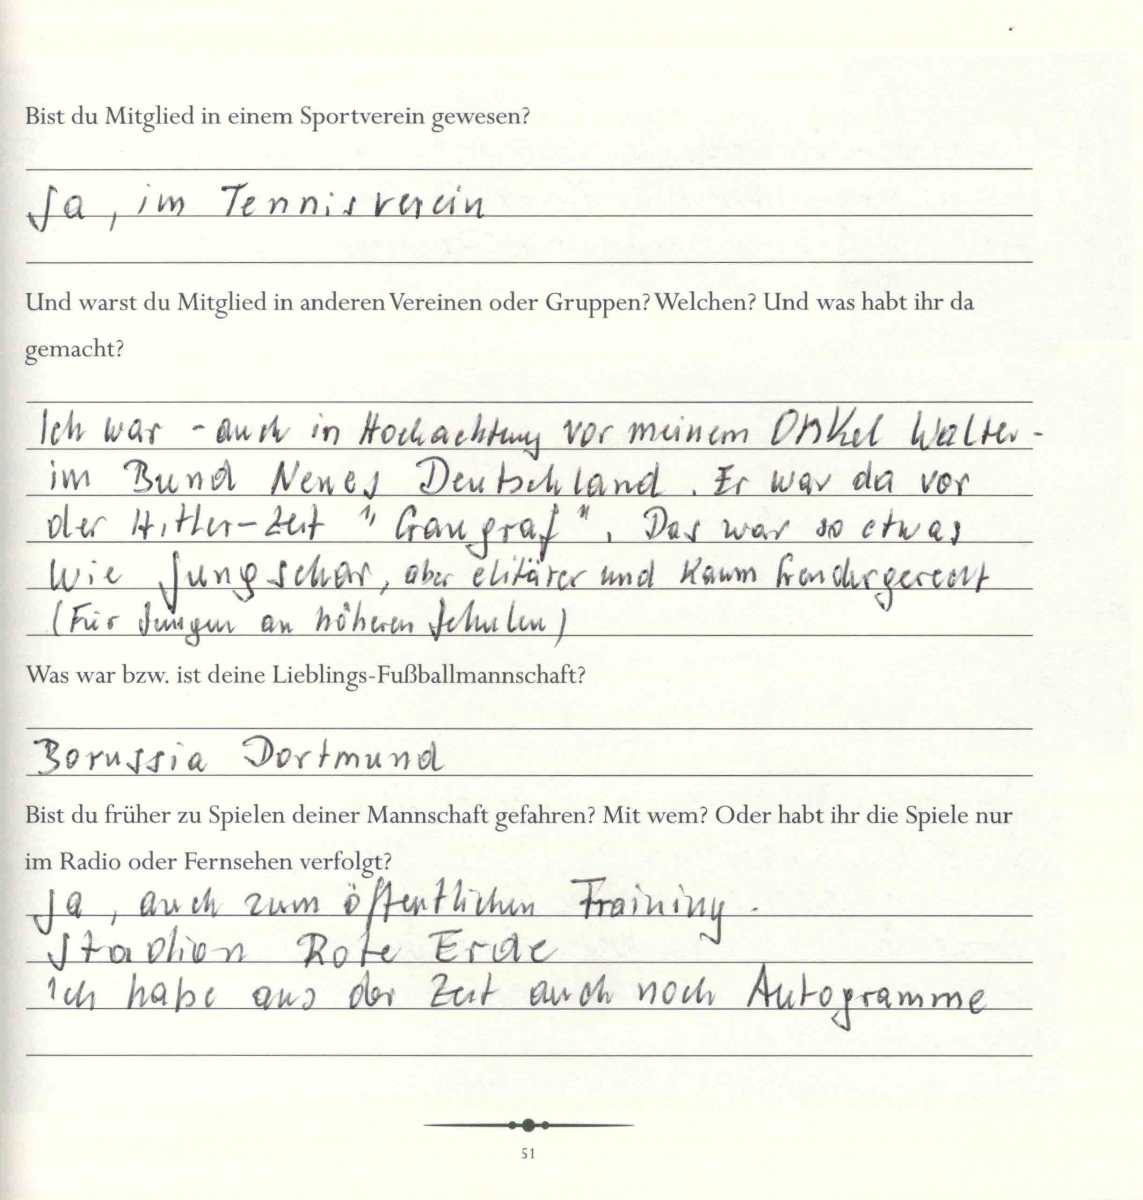 Bist du Mitglied in einem Sportverein gewesen?
Ja, im Tennisverein
Und warst du Mitglied in anderen Vereinen oder Gruppen? Welchen? Und was habt ihr da
gemacht?
Ich war - auch in Hochachtung vor meinem Onkel Walter -
im Bund Neues Deutschland. Er war da vor
der Hitler-Zeit "Gaugraf". Das war so etwas
wie Jungschar, aber elitärer und kaum gendergerecht
(Für Jungen an höheren Schulen)
Was war bzw. ist deine Lieblings-Fußballmannschaft?
Borussia Dortmund
Bist du früher zu Spielen deiner Mannschaft gefahren? Mit wem? Oder habt ihr die Spiele nur
im Radio oder Fernsehen verfolgt?
Ja, auch zum öffentlichen Training.
Stadion Rote Erde
Ich habe aus der Zeit auch noch Autogramme
51